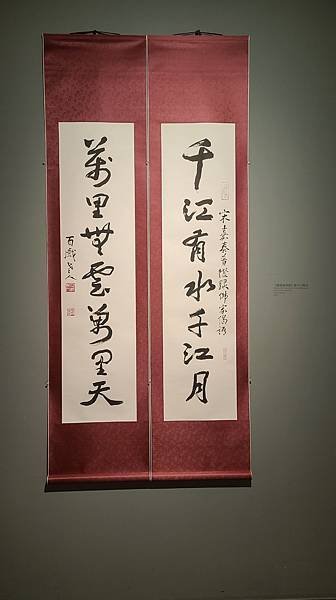 千江有水千江月
宋嘉泰普燈錄佛家偈語
萬里無雲萬里天
百戲老人